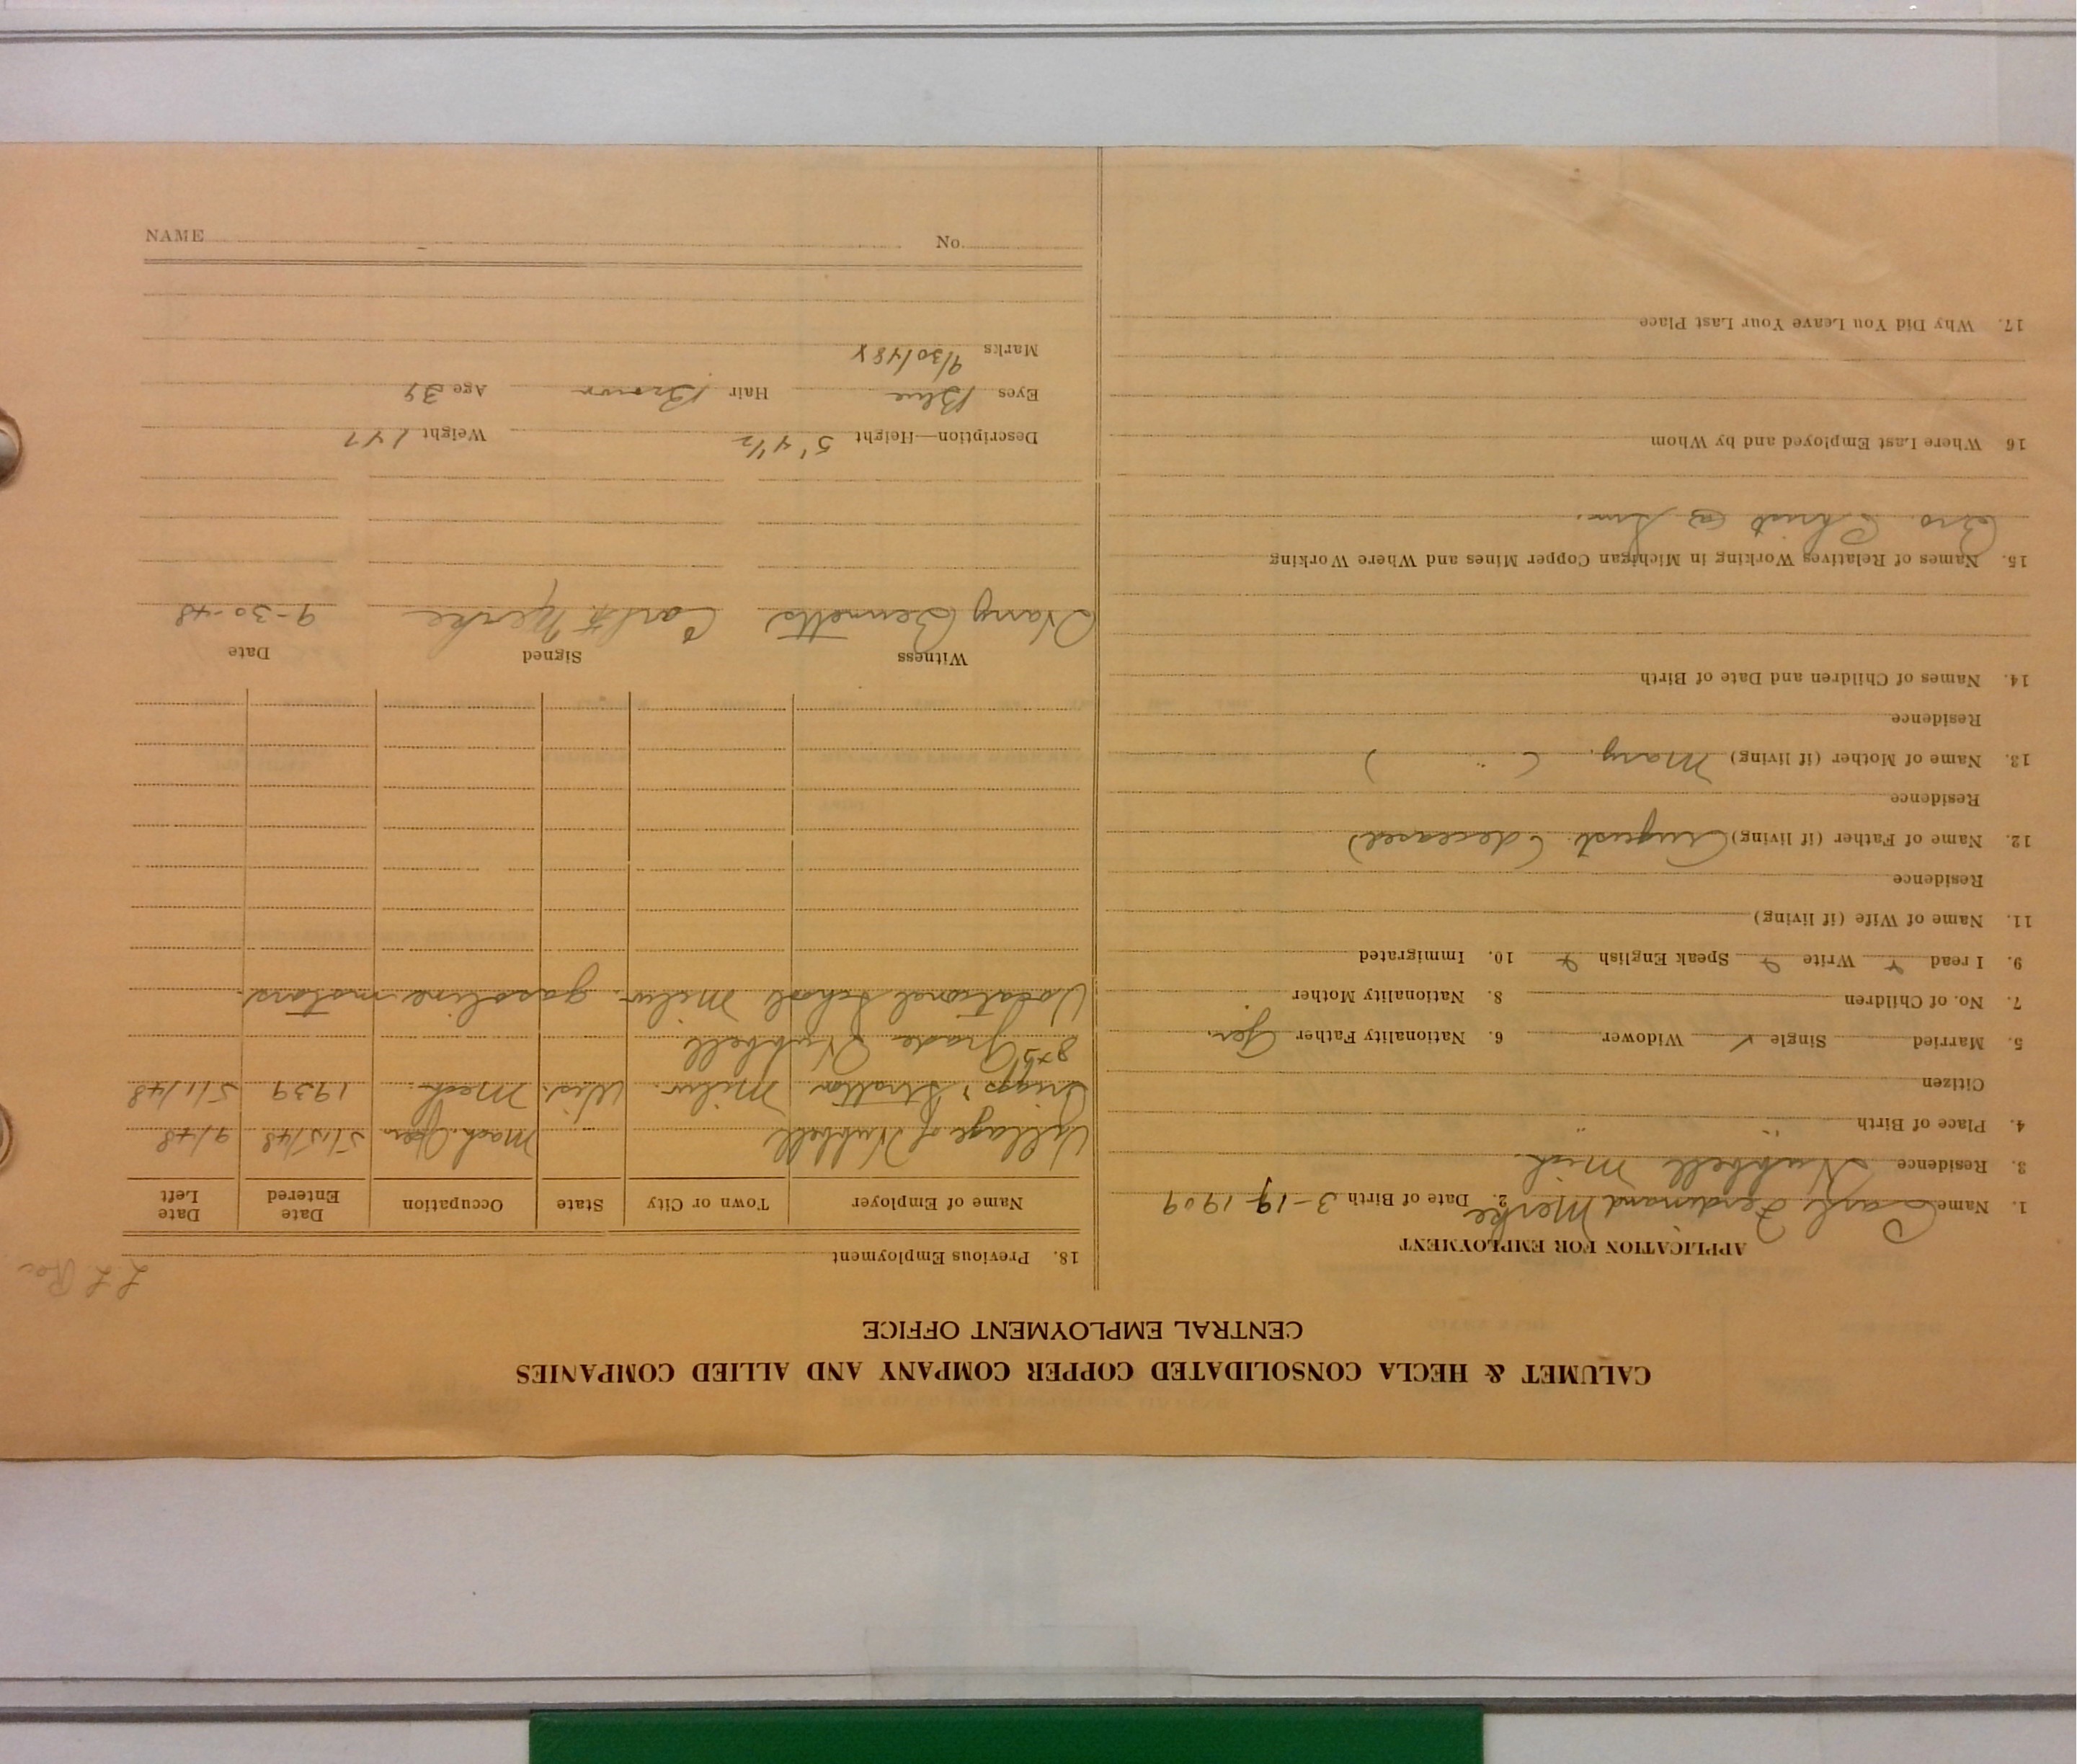 CALUMET & HECLA CONSOLIDATED COPPER COMPANY AND ALLIED COMPANIES
CENTRAL EMPLOYMENT OFFICE
APPLICATION FOR EMPLOYMENT
1. Name Carl Ferdinand Merke 2. Date of Birth 3-19-1909
3. Residence Hubbell Mich.
4. Place of Birth " "
Citizen
5. Married Single ✓ Widower 6. Nationality Father Ger.
7. No. of Children 8. Nationality Mother "
9. I read Write Speak English 10. Immigrated
11. Name of Wife (if living)
Residence
12. Name of Father (if living) August (deceased)
Residence
13. Name of Mother (if living) Mary. ( " )
Residence
14. Names of Children and Date of Birth
15. Names of Relatives Working in Michigan Copper Mines and Where Working
Bro. Christ @
16 Where Last Employed and by Whom
17. Why Did You Leave Your Last Place
18. Previous Employment
Name of Employer Town or City State Occupation Date Entered Date Left
Village of Hubbell Mach. Oper. 5/15/48 9/48
Briggs & Stratton Milw. Wis. Mech. 1939 5/1/48
8th Grade Hubbell
Vocational School Milw. gasoline motors.
Witness Signed Date
Harry Bennetts Carl F Merke 9-30-48
Description—Height 5' 4 1/2 Weight 147
Eyes Blue Hair Brown Age 39
Marks 9/30/48
NAME No.